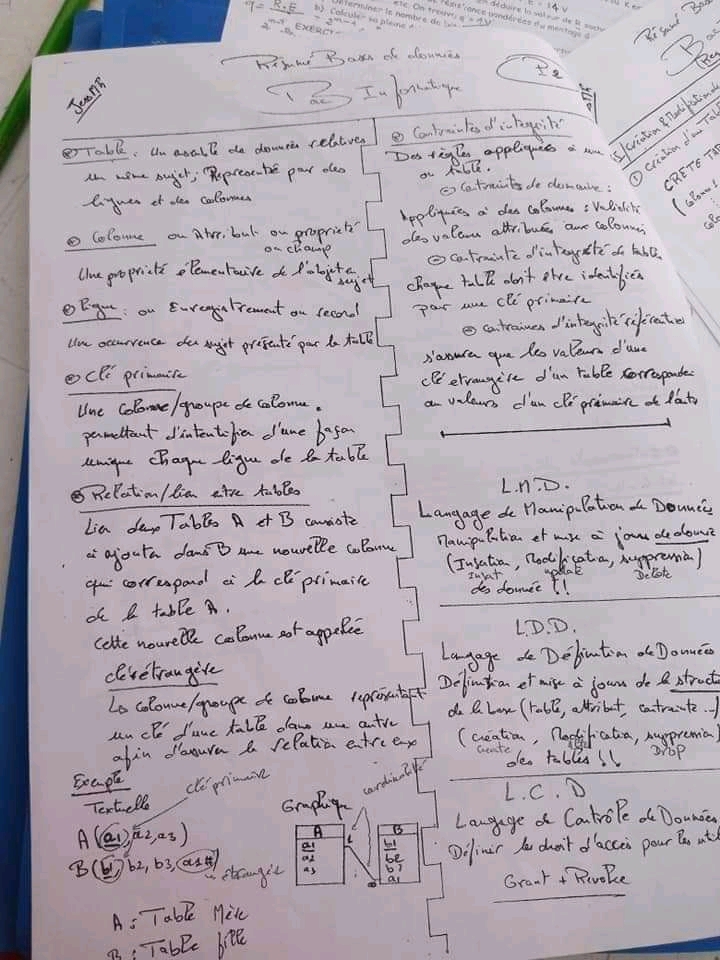 Résumé Bases de données
Bac Informatique
P2
⊙ Table : Un ensemble de données relatives
un même sujet; Représenté par des
lignes et des colonnes
⊙ Colonne ou Attribut ou propriété
ou champ
Une propriété élémentaire de l'objet
sujet
⊙ Ligne : ou Enregistrement ou record
Une occurrence du sujet présenté par la table
⊙ Clé primaire
Une colonne/groupe de colonne.
permettant d'intentifier d'une façon
unique chaque ligne de la table
⊙ Relation/lien entre tables
Lien deux Tables A et B consiste
à ajouter dans B une nouvelle colonne
qui correspond à la clé primaire
de la table A.
Cette nouvelle colonne est appelée
clé étrangère
La colonne/groupe de colonne représentant
un clé d'une table dans une autre
afin d'assurer la relation entre eux
Exemple
clé primaire
Textuelle
A (a1, a2, a3)
B (b1, b2, b3, a1#)
étrangère
A : Table Mère
B : Table fille
Graphique
cardinalité
A
a1
a2
a3
B
b1
b2
b3
a1
⊙ Contraintes d'intégrité
Des règles appliquées à une
ou table.
⊙ Contraintes de domaine :
Appliquées à des colonnes : Validité
des valeurs attribuées aux colonnes
⊙ Contrainte d'intégrité de table
chaque table doit être identifiés
par une clé primaire
⊙ contraines d'intégrité référentiel
s'assurer que les valeurs d'une
clé etrangère d'un table correspondent
au valeurs d'un clé primaire de
L.M.D.
Langage de Manipulation de Données
Manipulation et mise à jours de donné
(Insertion, Modification, suppression)
Insert update Delete
des donnée !!
L.D.D.
Langage de Définition de Données
Définition et mise à jours de la structu
de la base (table, attribut, contrainte...)
(création, Modification, suppression)
Create DROP
des tables !!
L.C.D
Langage de Contrôle de Données
Définir les droit d'accès pour les util
Grant + Revoke
Résumé Bas
Bac
Création & Modification de
① Création d'un Tab
CRETE TAB
(colonne
colo
déduire la valeur de la
E = 14 V
Déterminer le nombre de
b) Calculer sa pleine
EXERC